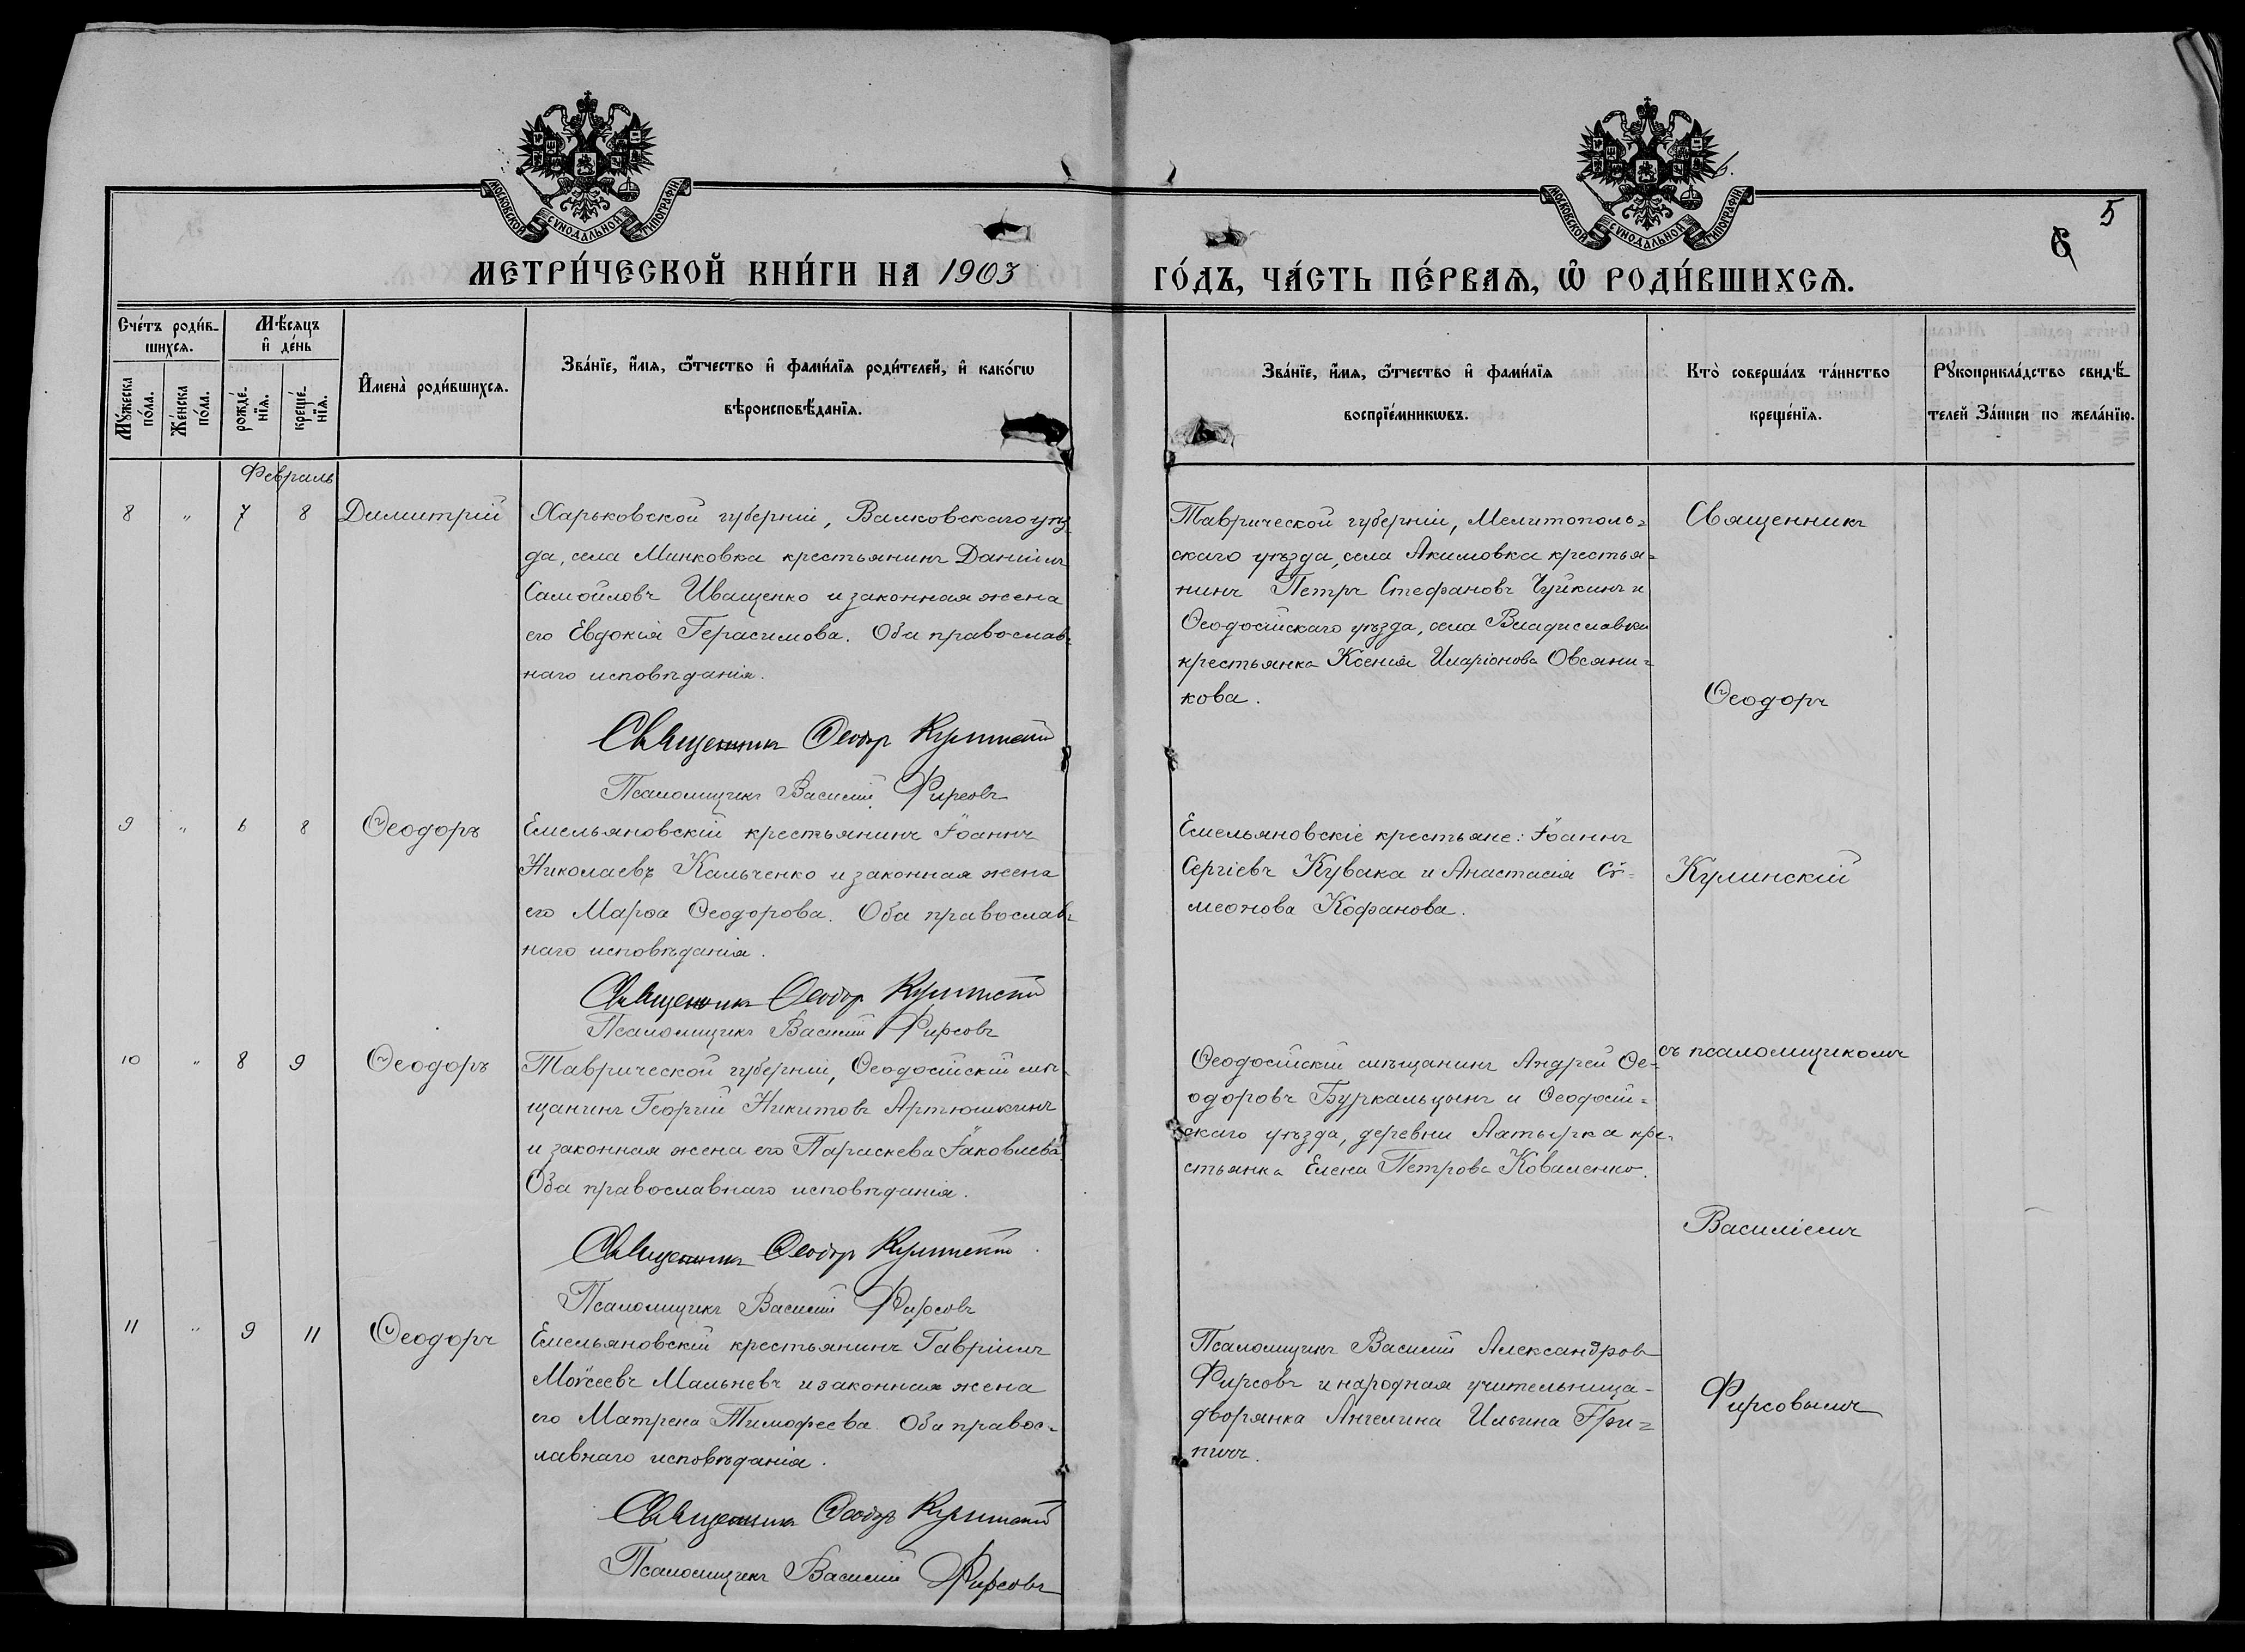 МОСКОВСКОЙ СѴНОДАЛЬНОЙ ТИПОГРАФІИ
МОСКОВСКОЙ СѴНОДАЛЬНОЙ ТИПОГРАФІИ
5
6
МЕТРИ́ЧЕСКОЙ КНИ́ГИ НА 1903
ГО́ДЪ, ЧА́СТЬ ПЕ́РВАѦ, Ѽ РОДИ́ВШИХСѦ.
Сче́тъ роди́в-
шихсѧ.
Мѣ́сѧцъ
и҆ де́нь
Мꙋ́жеска
по́ла.
Же́нска
по́ла.
рожде́-
нїѧ.
креще́-
нїѧ.
И҆мена̀ роди́вшихсѧ.
Зва́нїе, и҆́мѧ, ѻ҆́тчество и҆ фами́лїѧ роди́телей, и҆ како́гѡ
вѣроисповѣ́данїѧ.
Зва́нїе, и҆́мѧ, ѻ҆́тчество и҆ фами́лїѧ
воспрїе́мникѡвъ.
Кто̀ соверша́лъ та́инство
креще́нїѧ.
Рꙋкоприкла́дство свидѣ́-
телей За́писи по жела́нїю.
Февраль
8 " 7 8 Димитрій
Харьковской губерніи, Валковскаго уѣз
да, села Минковка крестьянинъ Даніилъ
Самойловъ Иващенко и законная жена
его Евдокія Герасимова. Оба православ-
наго исповѣданія.
Священникъ Ѳеодор Кулинскій
Псаломщикъ Василій Фирсовъ
Таврической губерніи, Мелитополь-
скаго уѣзда, села Акимовка крестья-
нинъ Петръ Стефановъ Чуйкинъ и
Ѳеодосійскаго уѣзда, села Владиславки
крестьянка Ксенія Иларіонова Овсяни-
кова.
Священникъ
Ѳеодоръ
9 " 6 8 Ѳеодоръ
Емельяновскій крестьянинъ Іоаннъ
Николаевъ Кальченко и законная жена
его Марѳа Ѳеодорова. Оба православ-
наго исповѣданія.
Священникъ Ѳеодор Кулинскій
Псаломщикъ Василій Фирсовъ
Емельяновскіе крестьяне: Іоаннъ
Сергіевъ Кувака и Анастасія Сѵ-
меонова Кофанова.
Кулинскій
10 " 8 9 Ѳеодоръ
Таврической губерніи, Ѳеодосійскій мѣ-
щанинъ Георгій Никитовъ Артюшкинъ
и законная жена его Параскева Іаковлева.
Оба православнаго исповѣданія.
Священникъ Ѳеодор Кулинскій
Псаломщикъ Василій Фирсовъ
Ѳеодосійскій мѣщанинъ Андрей Ѳе-
одоровъ Буркальцынъ и Ѳеодосій-
скаго уѣзда, деревни Ахтырка кре-
стьянка Елена Петрова Коваленко.
съ псаломщикомъ
Василіемъ
11 " 9 11 Ѳеодоръ
Емельяновскій крестьянинъ Гавріилъ
Моѵсеевъ Мальневъ и законная жена
его Матрена Тимофеева. Оба правос-
лавнаго исповѣданія.
Священникъ Ѳеодор Кулинскій
Псаломщикъ Василій Фирсовъ
Псаломщикъ Василій Александров
Фирсовъ и народная учительница-
дворянка Ангелина Ильина Гри-
ничъ.
Фирсовымъ